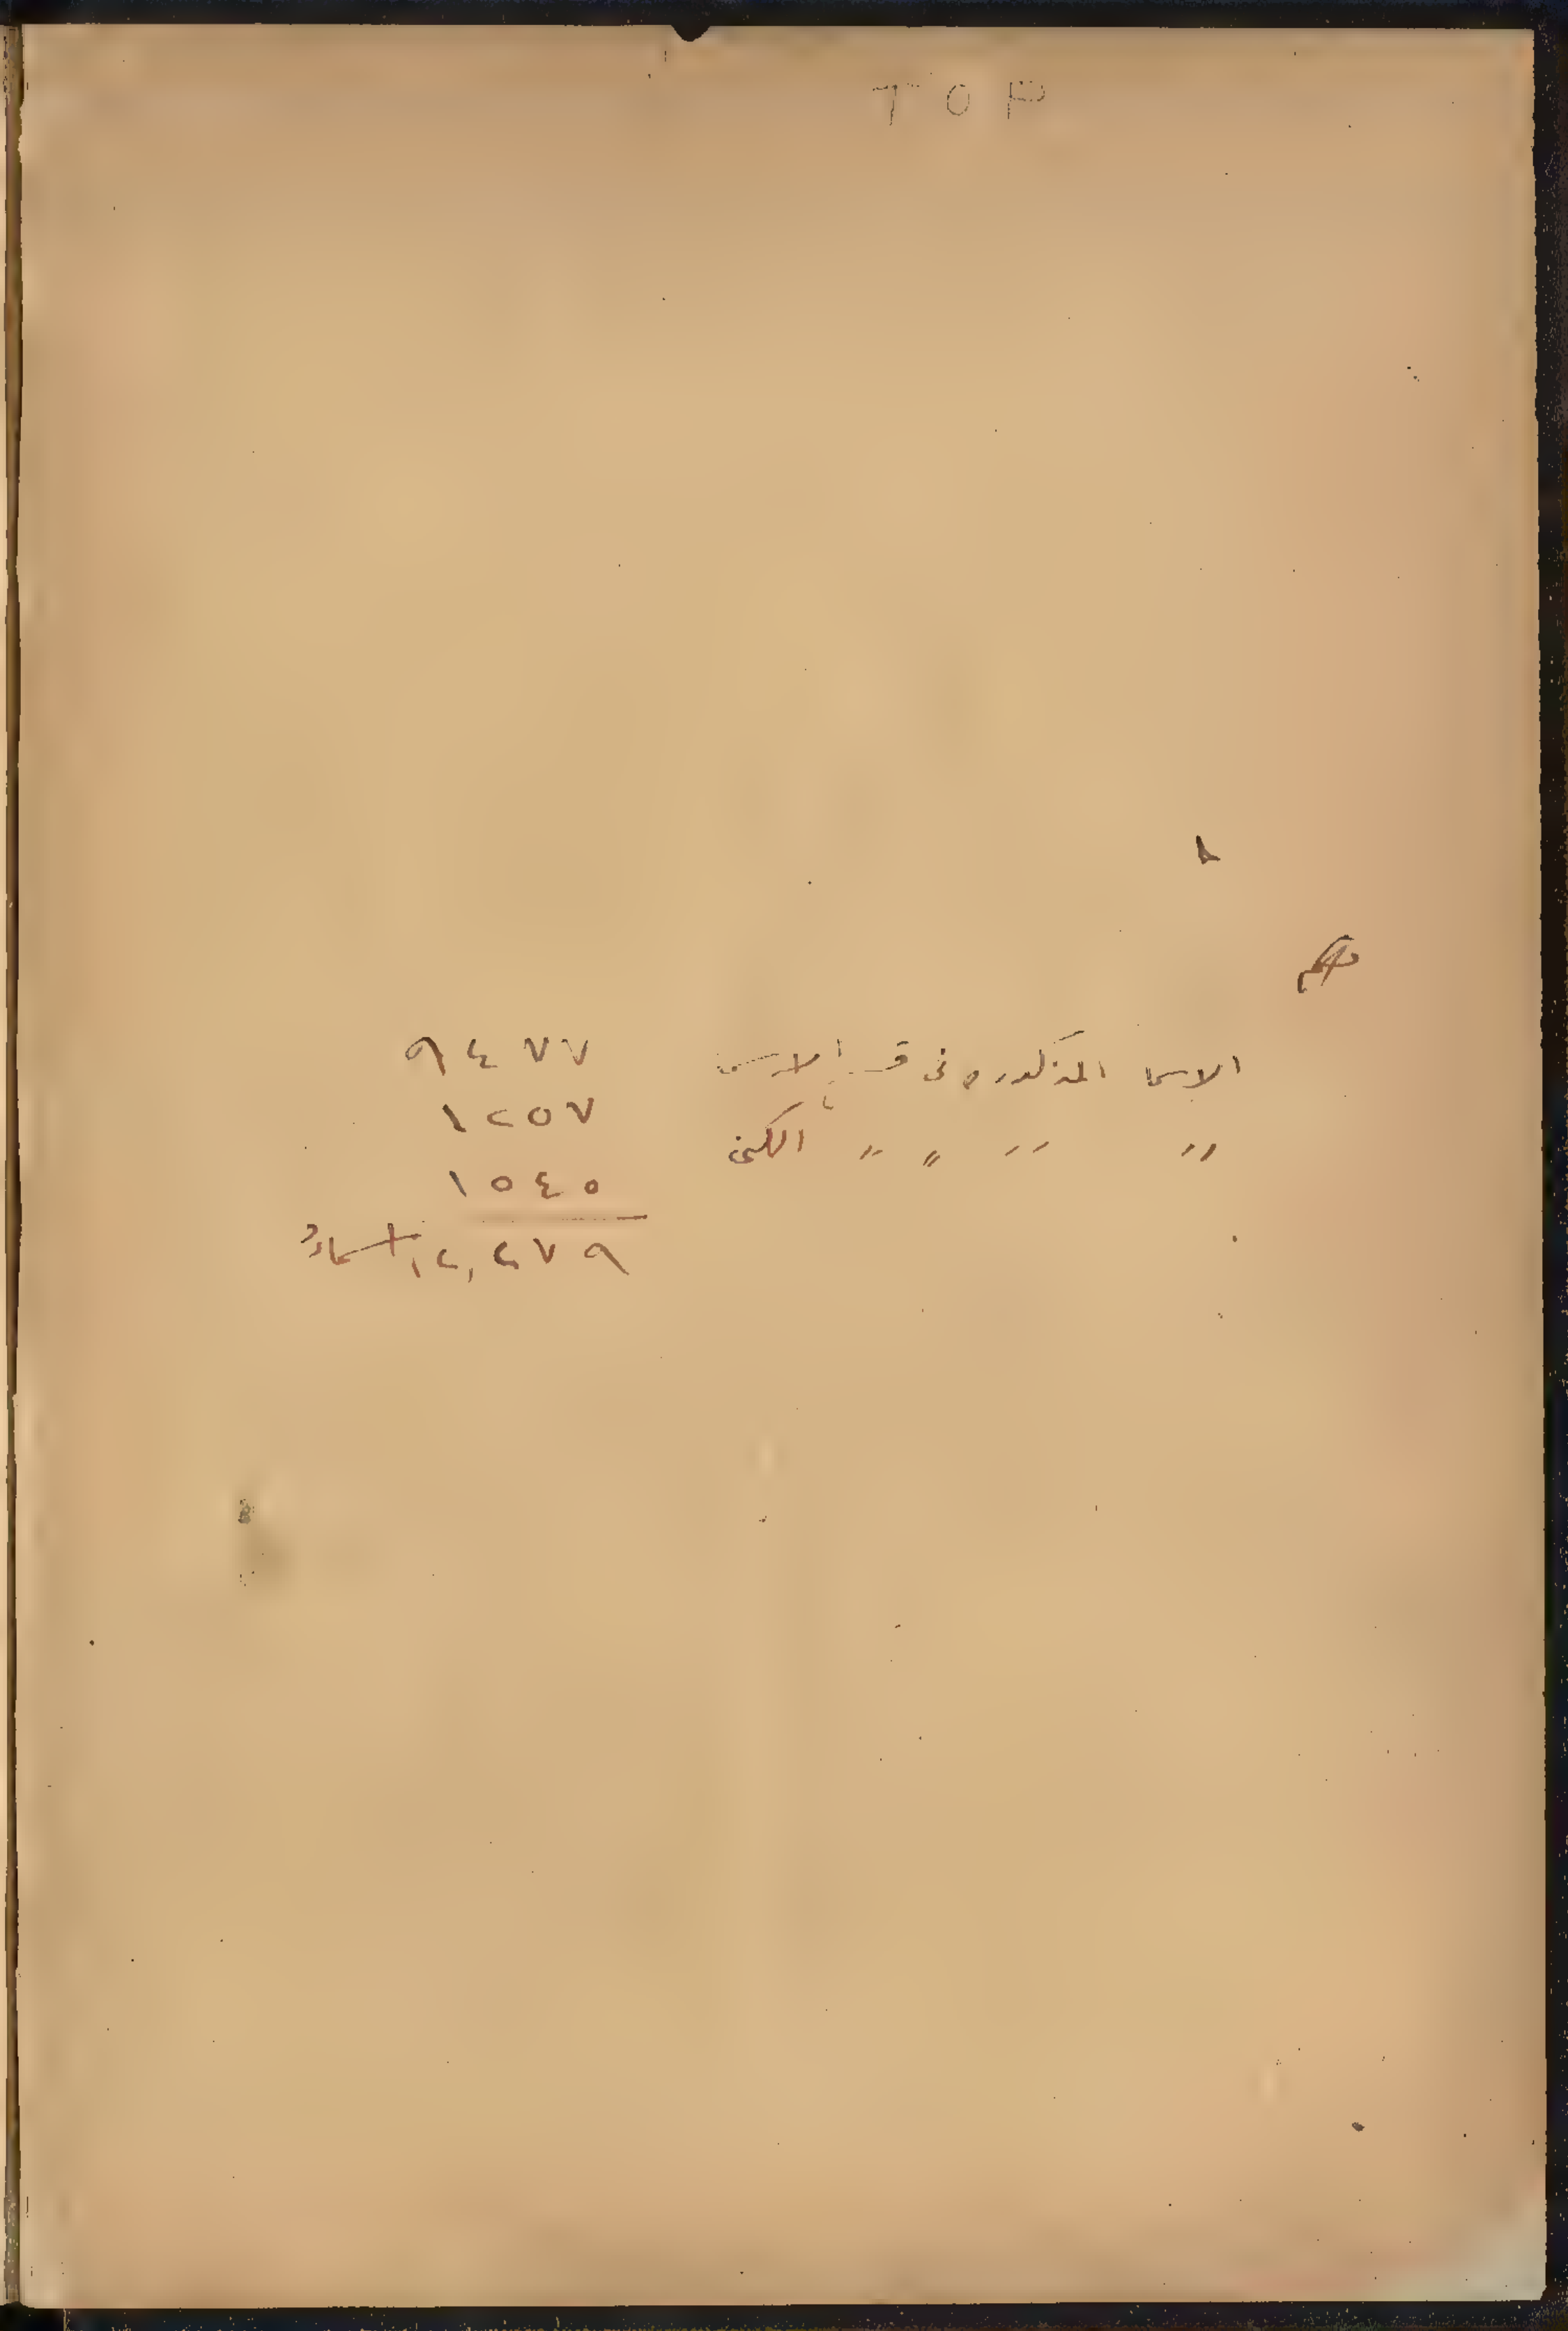 TOP
الاسما المذكوره فى ق الاسما ٩٤٧٧
〃 〃 〃 〃 الكنى ١٢٥٧
١٥٤٥
١٢,٢٧٩ اسماء